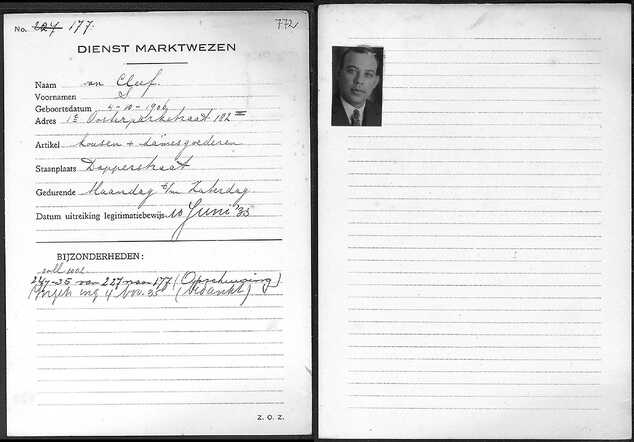 No. 227 177. 772
DIENST MARKTWEZEN
Naam van Cleef.
Voornamen
Geboortedatum 4-10-1906
Adres 1e Oosterparkstraat 182 III
Artikel kousen + damesgoederen
Staanplaats Dapperstraat
Gedurende Maandag t/m Zaterdag
Datum uitreiking legitimatiebewijs 10 Juni '35
BIJZONDERHEDEN:
-35 van 227 naar 177 (Opschuiving)
ing 4 Nov. 35 (bedankt)
Z. O. Z.